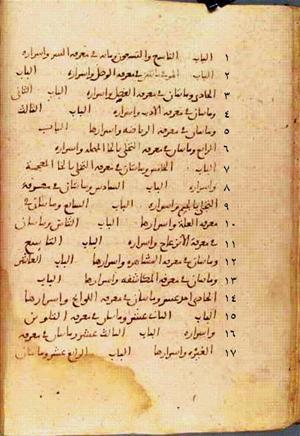 ١ الباب التاسع والتسعون ومائه في معرفة السر واسراره
٢ الباب الموفي مائتين في معرفة الوصل واسراره الباب
٣ الحادي ومائتان في معرفة الفصل واسراره الباب الثاني
٤ ومائتان في معرفة الادب واسراره الباب الثالث
٥ ومائتان في معرفة الرياضه واسرارها الباب
٦ الرابع ومائتان في معرفة التحلي بالحا المهمله واسراره
٧ الباب الخامس ومائتان في معرفة التخلي بالخا المعجمة
٨ واسراره الباب السادس ومائتان في معرفة
٩ التجلي بالجيم واسراره الباب السابع ومائتان في
١٠ معرفة العلة واسرارها الباب الثامن ومائتان
١١ في معرفة الانزعاج واسراره الباب التاسع
١٢ ومائتان في معرفة المشاهده واسرارها الباب العاشر
١٣ ومائتان في معرفة المكاشفه واسرارها الباب
١٤ الحادي عشر ومائتان في معرفة اللوائح واسرارها
١٥ الباب الثاني عشر ومائتان في معرفة التلوين
١٦ واسراره الباب الثالث عشر ومائتان في معرفة
١٧ الغيره واسرارها الباب الرابع عشر ومائتان